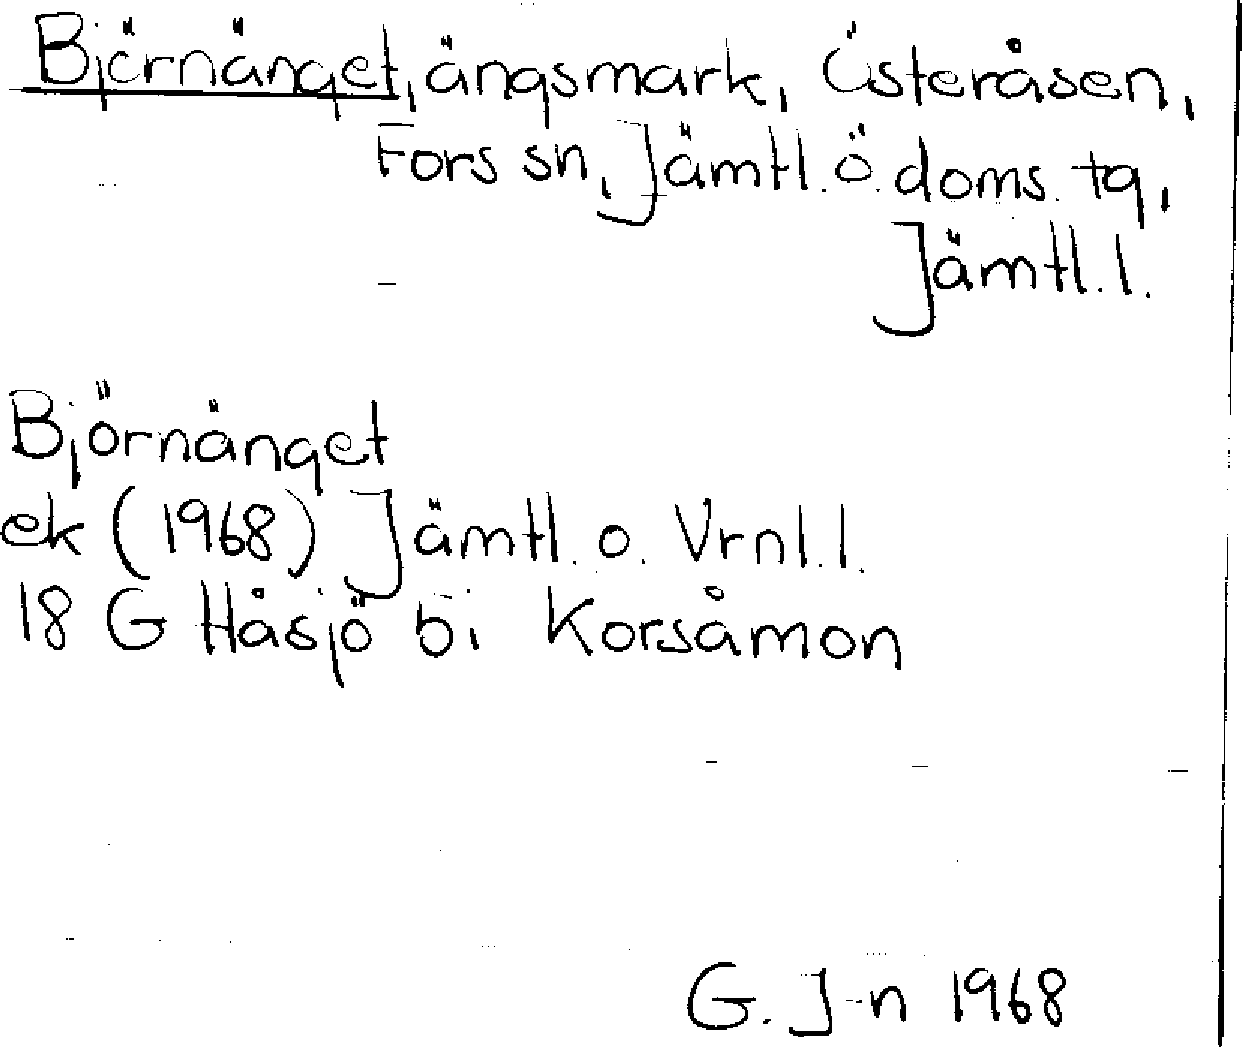 Björnänget, ängsmark, Österåsen,
Fors sn, Jämtl. ö. doms. tg,
Jämtl. l.
Björnänget
ek (1968) Jämtl. o. Vrnl. l.
18 G Håsjö bi Korsåmon
G. J-n 1968